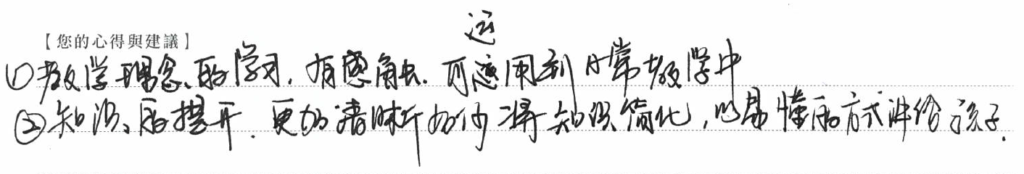 【您的心得與建議】
运
①教学理念的学习,有感触.可应用到日常教学中
②知识的提升.更加清晰如何将知识简化,以易懂的方式讲给孩子.